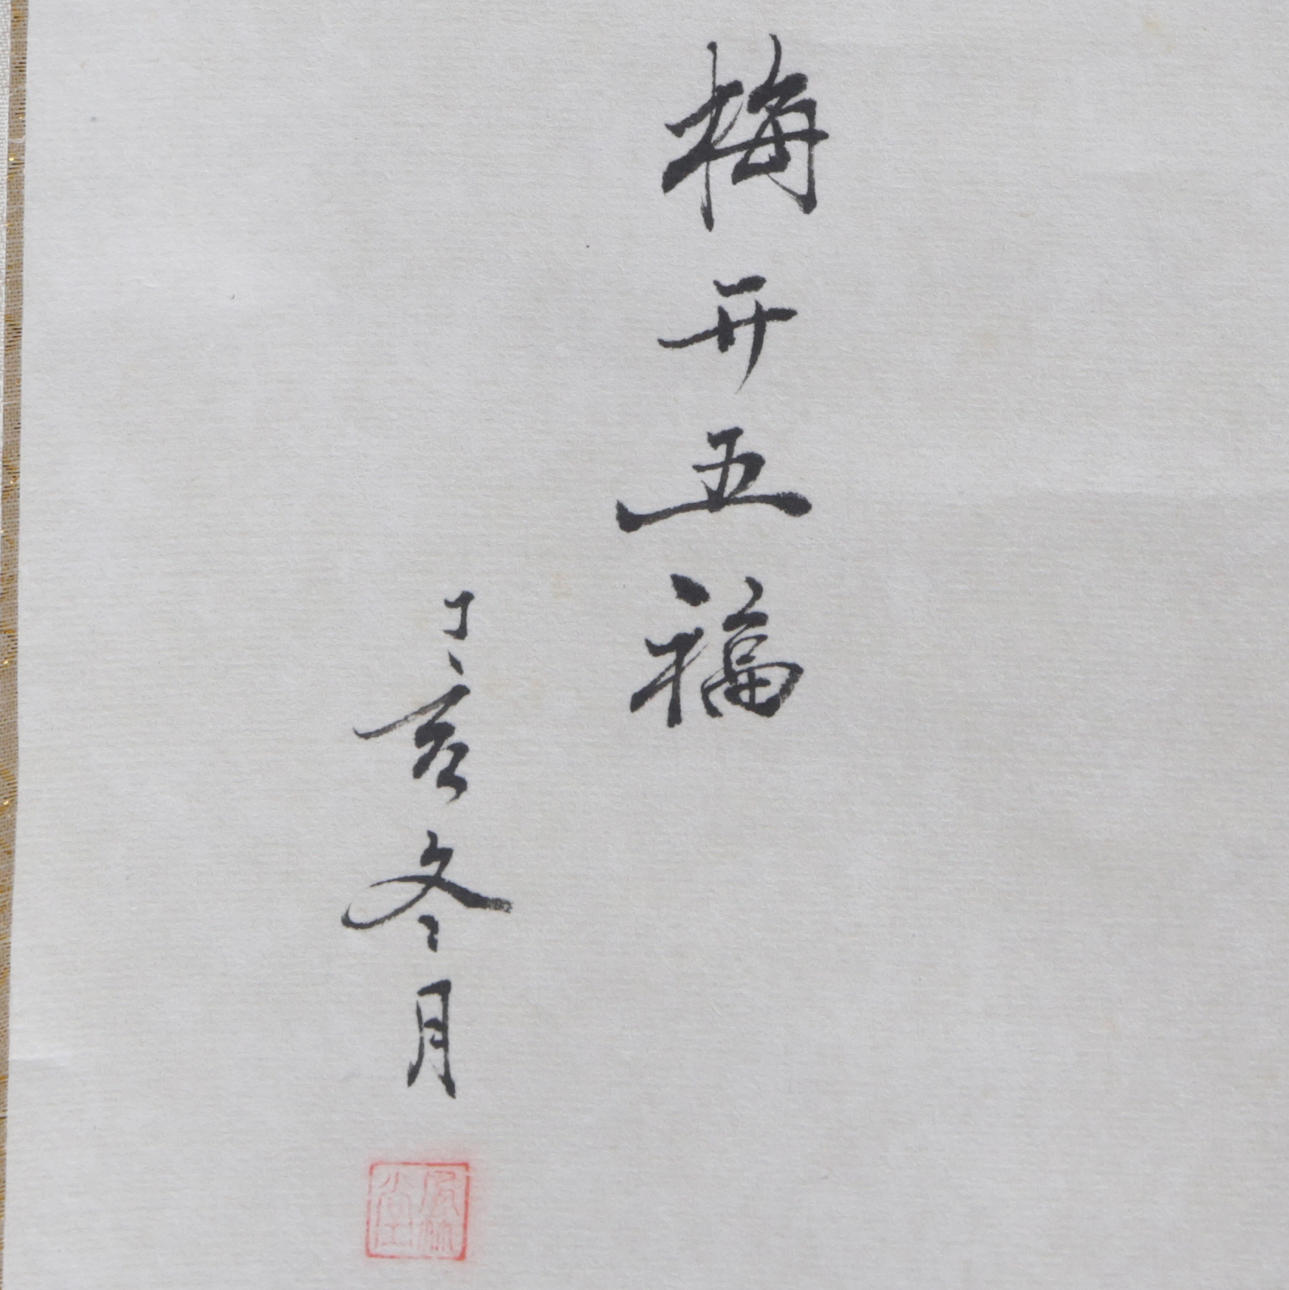 梅开五福
丁亥冬月